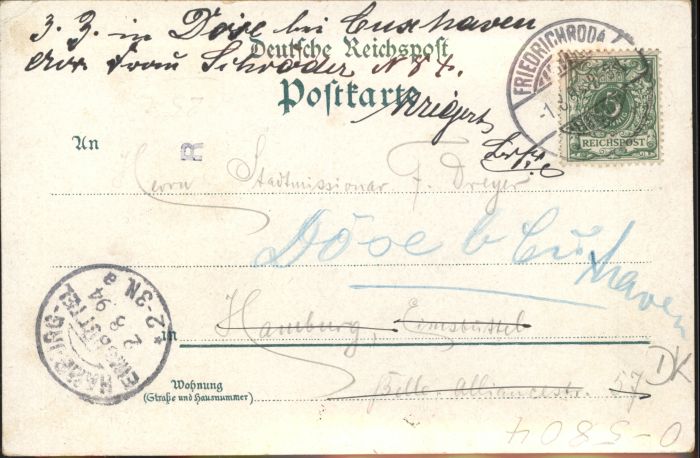 3. Z. in Döse bei Cuxhaven
Deutsche Reichspost
Frau Schröder N 84.
Postkarte
FRIEDRICHRODA
REICHSPOST
An
R
Herrn Stadtmissionar F. Dreyer
Döse b Cuxhaven
HAMBURG-
2 8 94
2-3N. a
in Hamburg, Eimsbüttel
Wohnung
(Straße und Hausnummer)
Belle-Alliancestr. 57
DK
0-5804